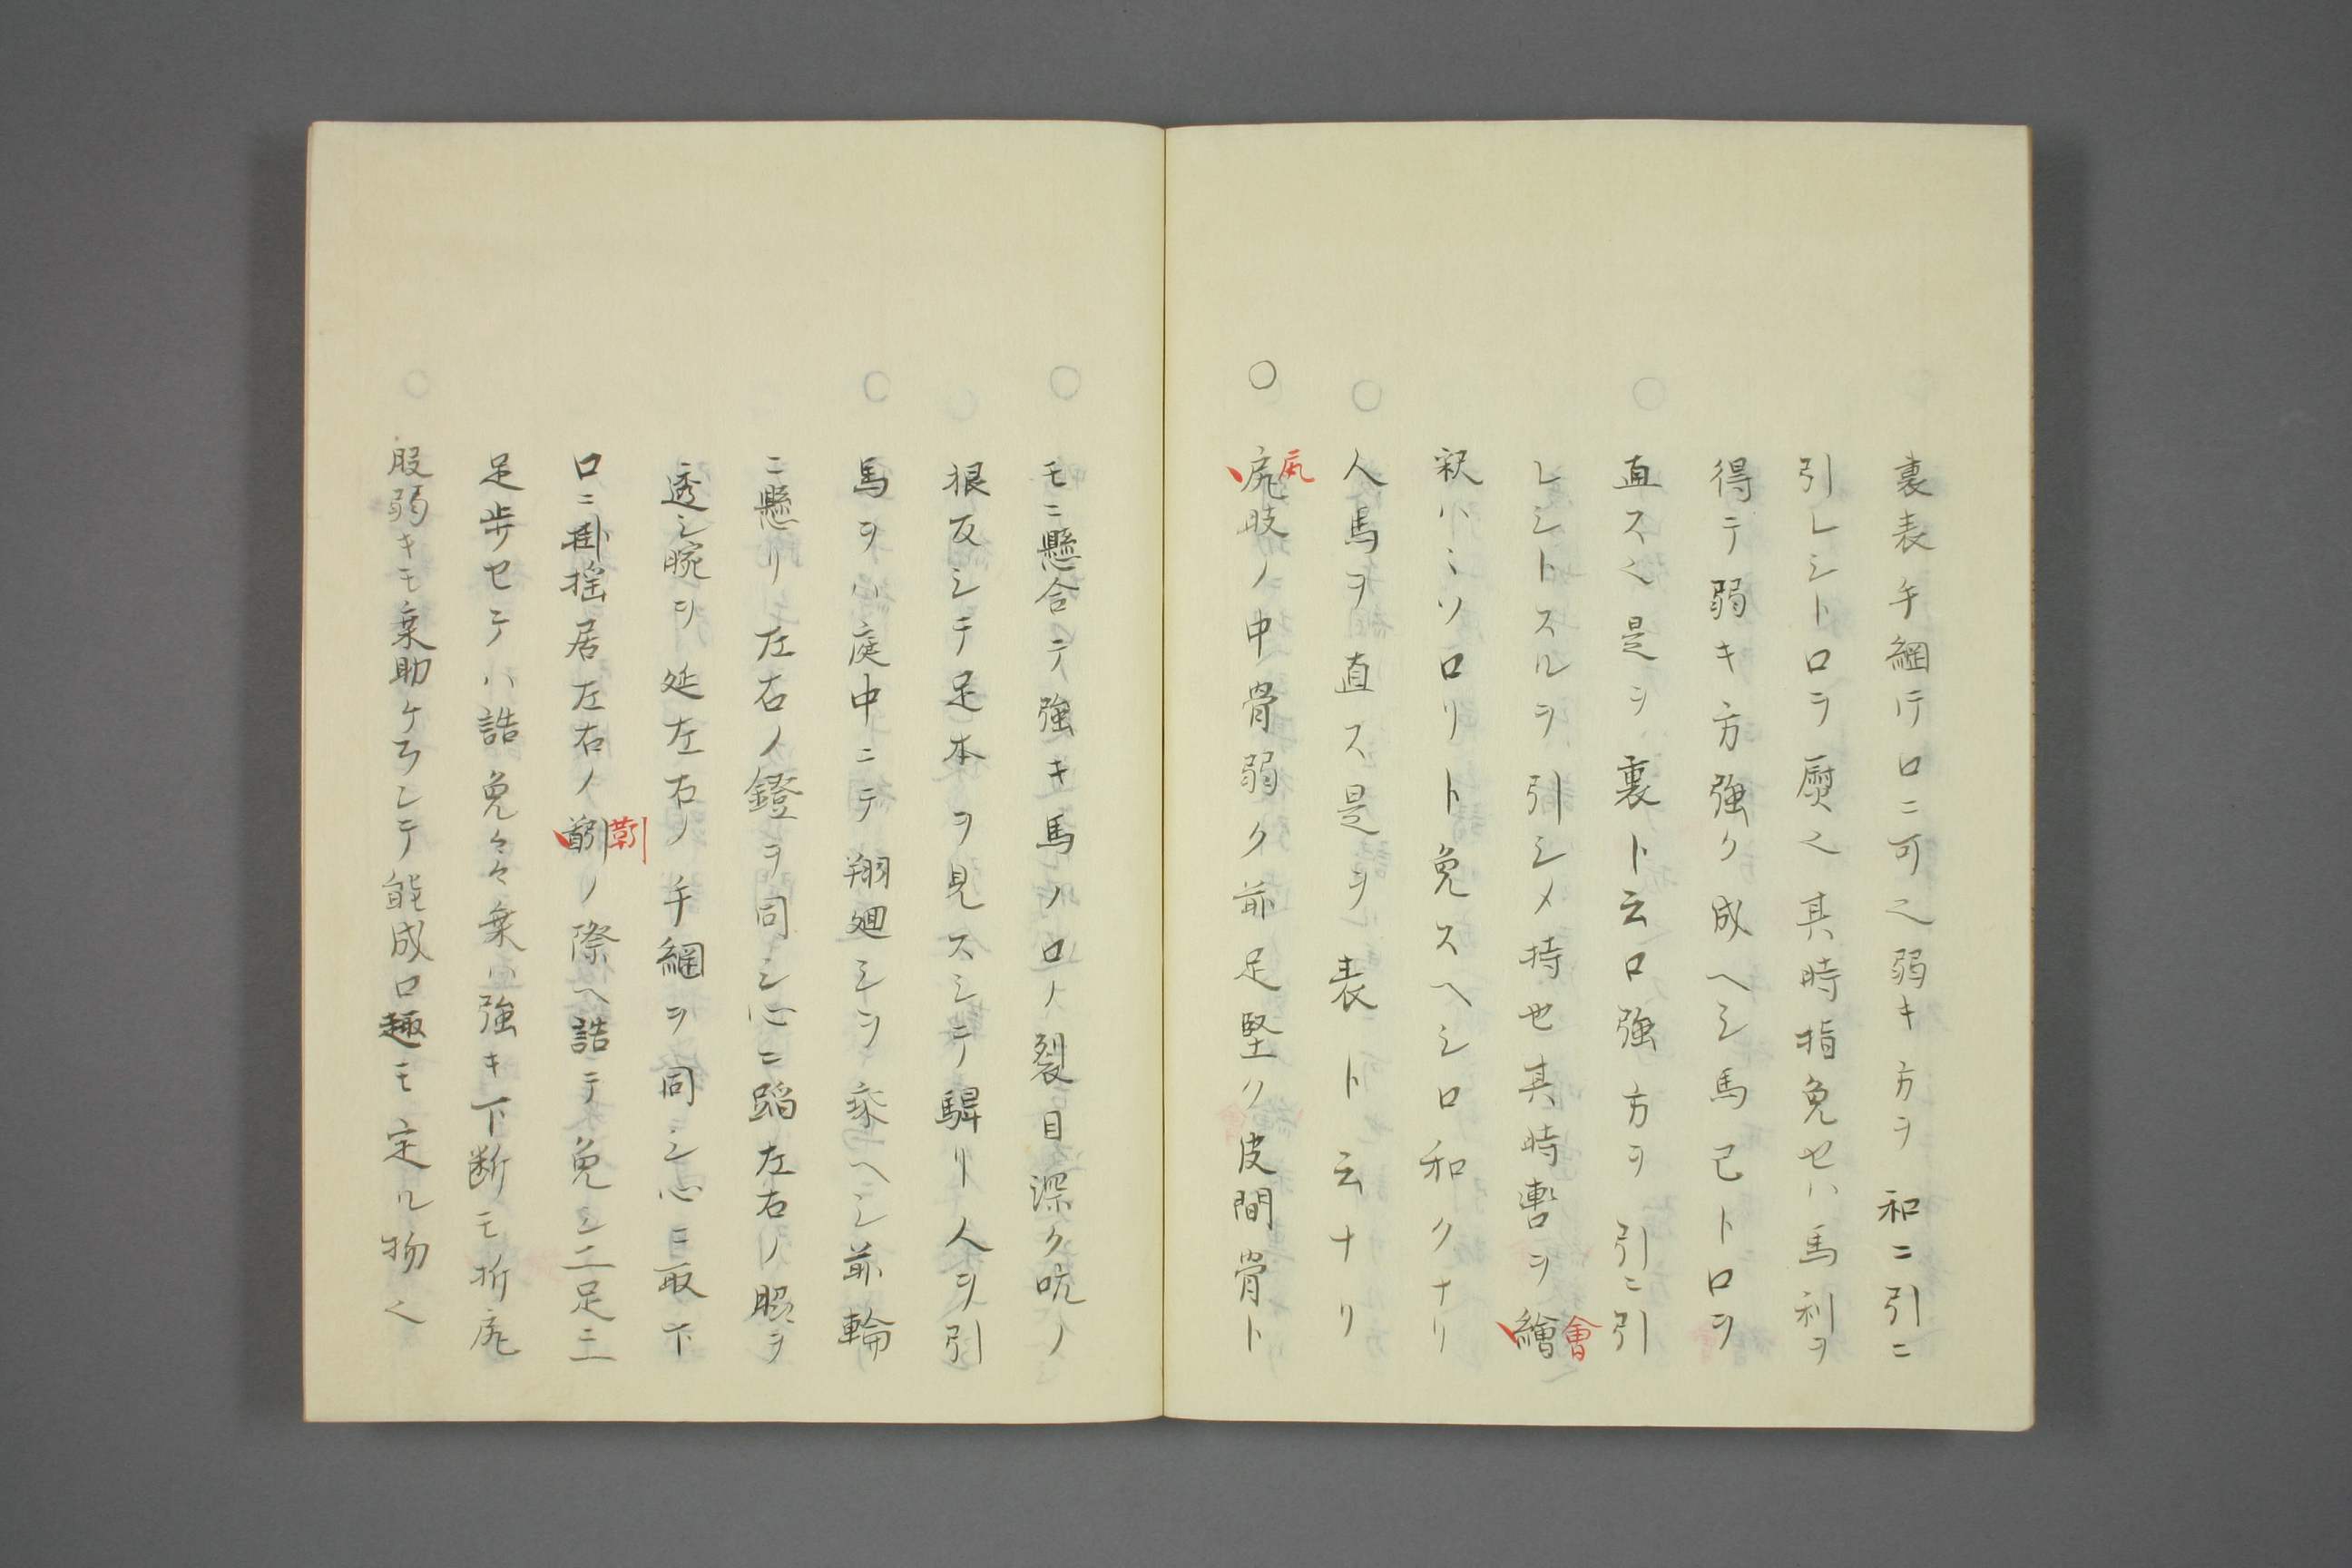 裏表手綱行口ニ可之弱キ方ヲ和ニ引ニ
引レシト口ヲ㷉之其時指免セハ馬利ヲ
得テ弱キ方強ク成ヘシ馬己ト口ヲ
直スヘ是ヲ裏ト云口強方ヲ引ニ引
レシトスルヲ引シメ持也其時轡ヲ繪會
釈ハミソロリト免スヘシ口和クナリ
人馬ヲ直ス是ヲ表ト云ナリ
○
尻肢ノ中骨弱ク前足堅ク皮間骨ト
モニ懸合テ強キ馬ノ口ノ裂目深ク吭ノ
根反シテ足本ヲ見スシテ驛リ人ヲ引
馬ヲハ庭中ニテ翔廻シヲ乗ヘシ前輪
ニ懸リ左右ノ鐙ヲ同シ心ニ蹈左右ノ腰ヲ
透シ腕ヲ延左右ノ手綱ヲ同シ心ニ取下
口ニ掛揺居左右ノ靷ノ際ヘ詰テ免シ二足三
足歩セテハ詰免々々乗ハ強キ下断モ折尻
股弱キモ乗助ケラレテ能成口趣モ定ル物ヘ